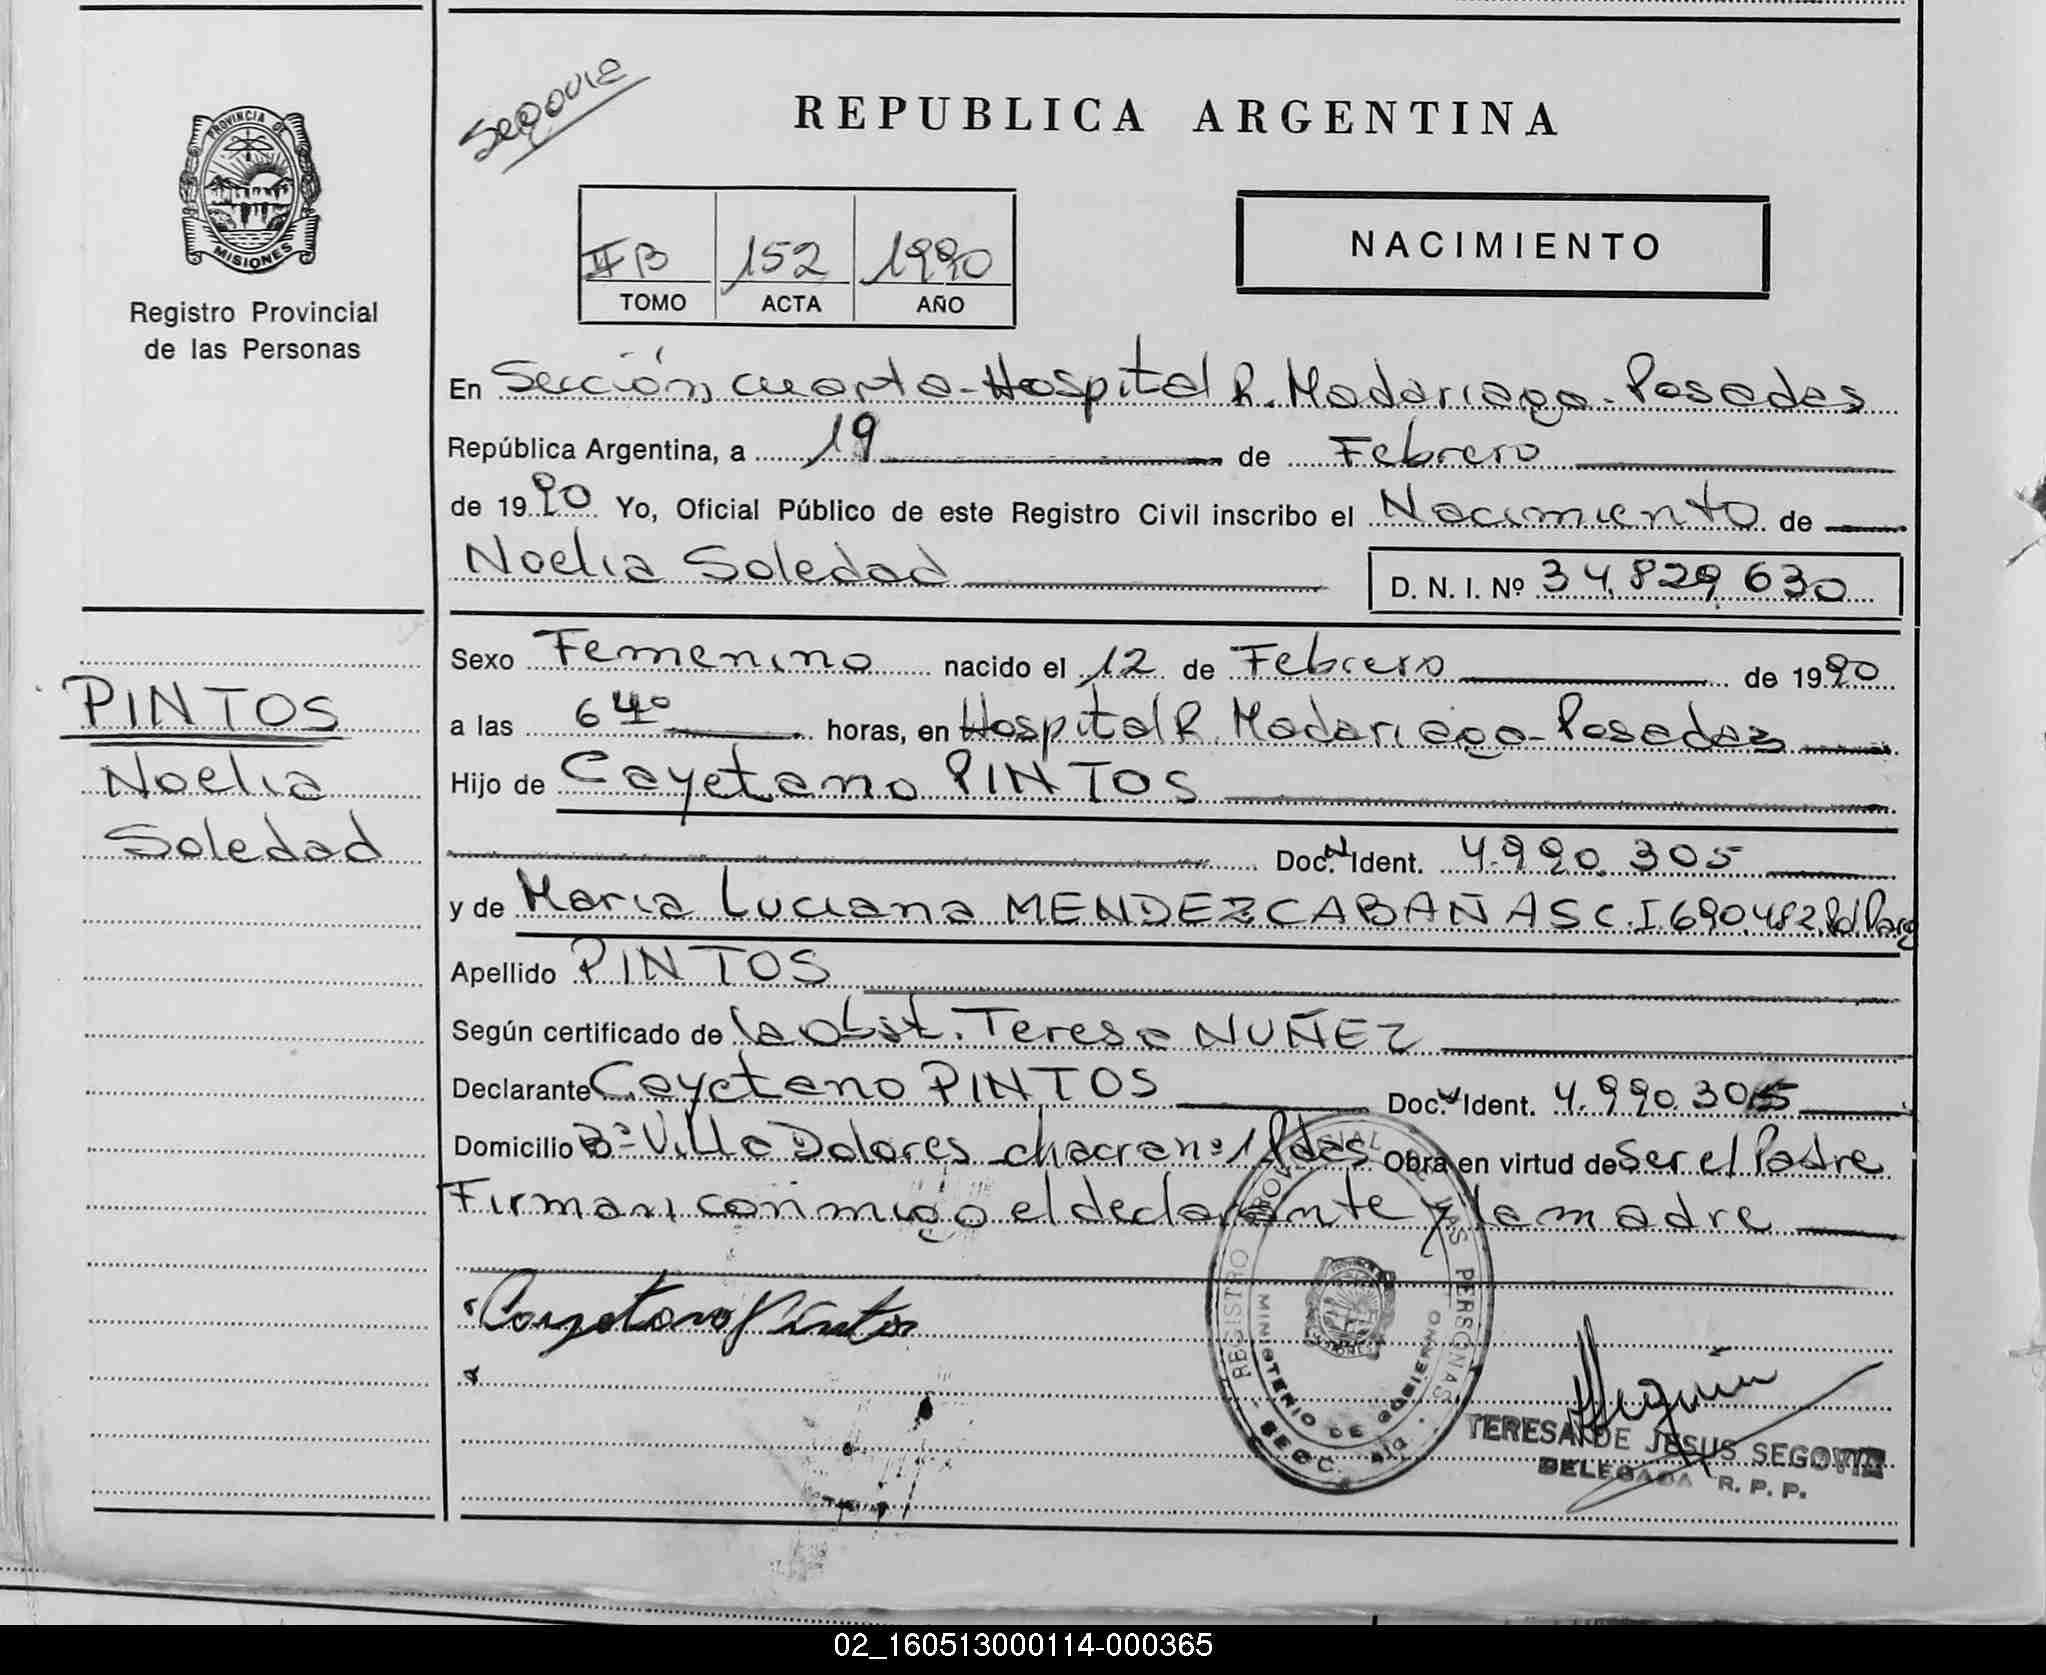 Segovia
REPUBLICA ARGENTINA
PROVINCIA DE
MISIONES
Registro Provincial
de las Personas
II B 152 1990
TOMO ACTA AÑO
NACIMIENTO
En Sección cuarta-Hospital R. Madariaga-Posadas
República Argentina, a 19 de Febrero
de 1990 Yo, Oficial Público de este Registro Civil inscribo el Nacimiento de
Noelia Soledad D. N. I. Nº 34.829.630
Sexo Femenino nacido el 12 de Febrero de 1990
a las 6 40 horas, en Hospital R. Madariaga-Posadas
Hijo de Cayetano PINTOS
Doc. N Ident. 4.990.305
y de Maria Luciana MENDEZ CABAÑAS C.I 690.482 Pol Parg
Apellido PINTOS
Según certificado de la Obst. Teresa NUÑEZ
Declarante Cayetano PINTOS Doc. N Ident. 4.990.305
Domicilio Bº Villa Dolores chacra nº 1 Pdas Obra en virtud de ser el Padre
Firman conmigo el declarante y la madre
PINTOS
Noelia
Soledad
Cayetano Pintos
REGISTRO PROVINCIAL DE LAS PERSONAS
MINISTERIO DE GOBIERNO
TERESA DE JESUS SEGOVIA
DELEGADA R. P. P.
02_160513000114-000365